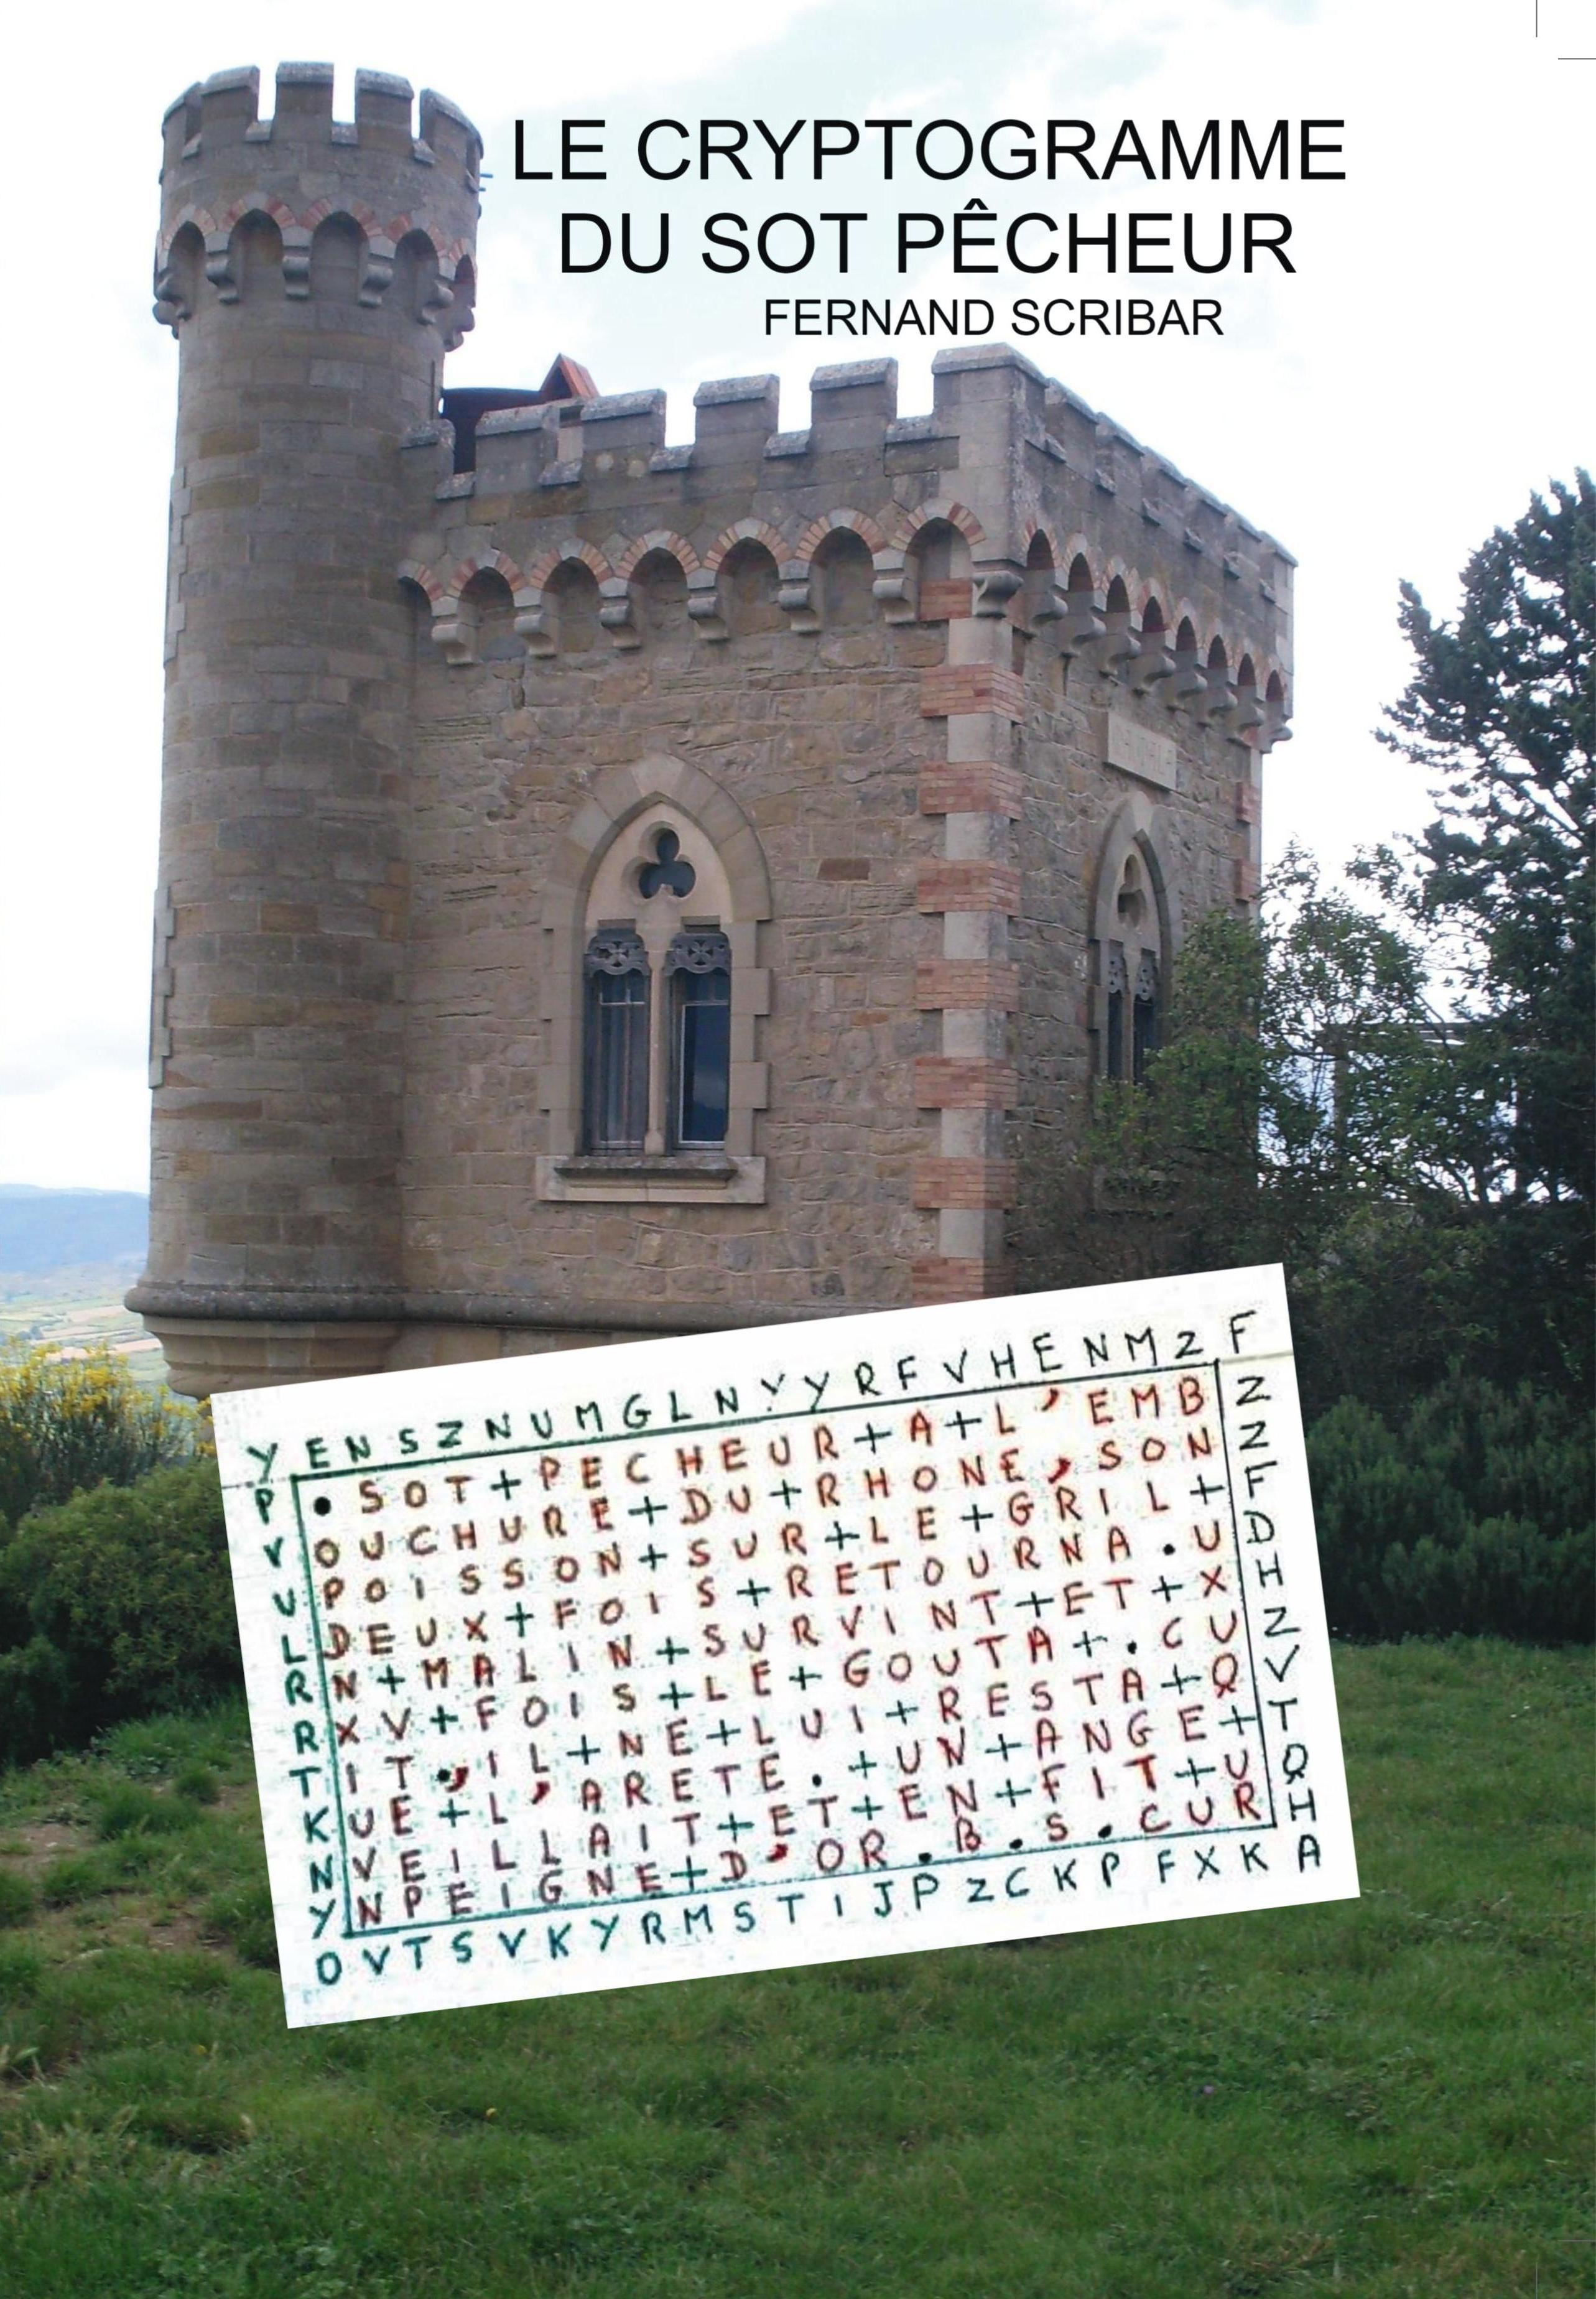 LE CRYPTOGRAMME
DU SOT PÊCHEUR
FERNAND SCRIBAR
Y E N S Z N U M G L N Y Y R F V H E N M Z F
P • S O T + P E C H E U R + A + L ' E M B Z
V O U C H U R E + D U + R H O N E , S O N Z
U P O I S S O N + S U R + L E + G R I L + F
L D E U X + F O I S + R E T O U R N A . U D
R N + M A L I N + S U R V I N T + E T + X H
R X V + F O I S + L E + G O U T A + . C U Z
T I T , I L + N E + L U I + R E S T A + Q V
K U E + L ' A R E T E . + U N + A N G E + T
N V E I L L A I T + E T + E N + F I T + U Q
Y N P E I G N E + D ' O R . B . S . C U R H
O V T S V K Y R M S T I J P Z C K P F X K A